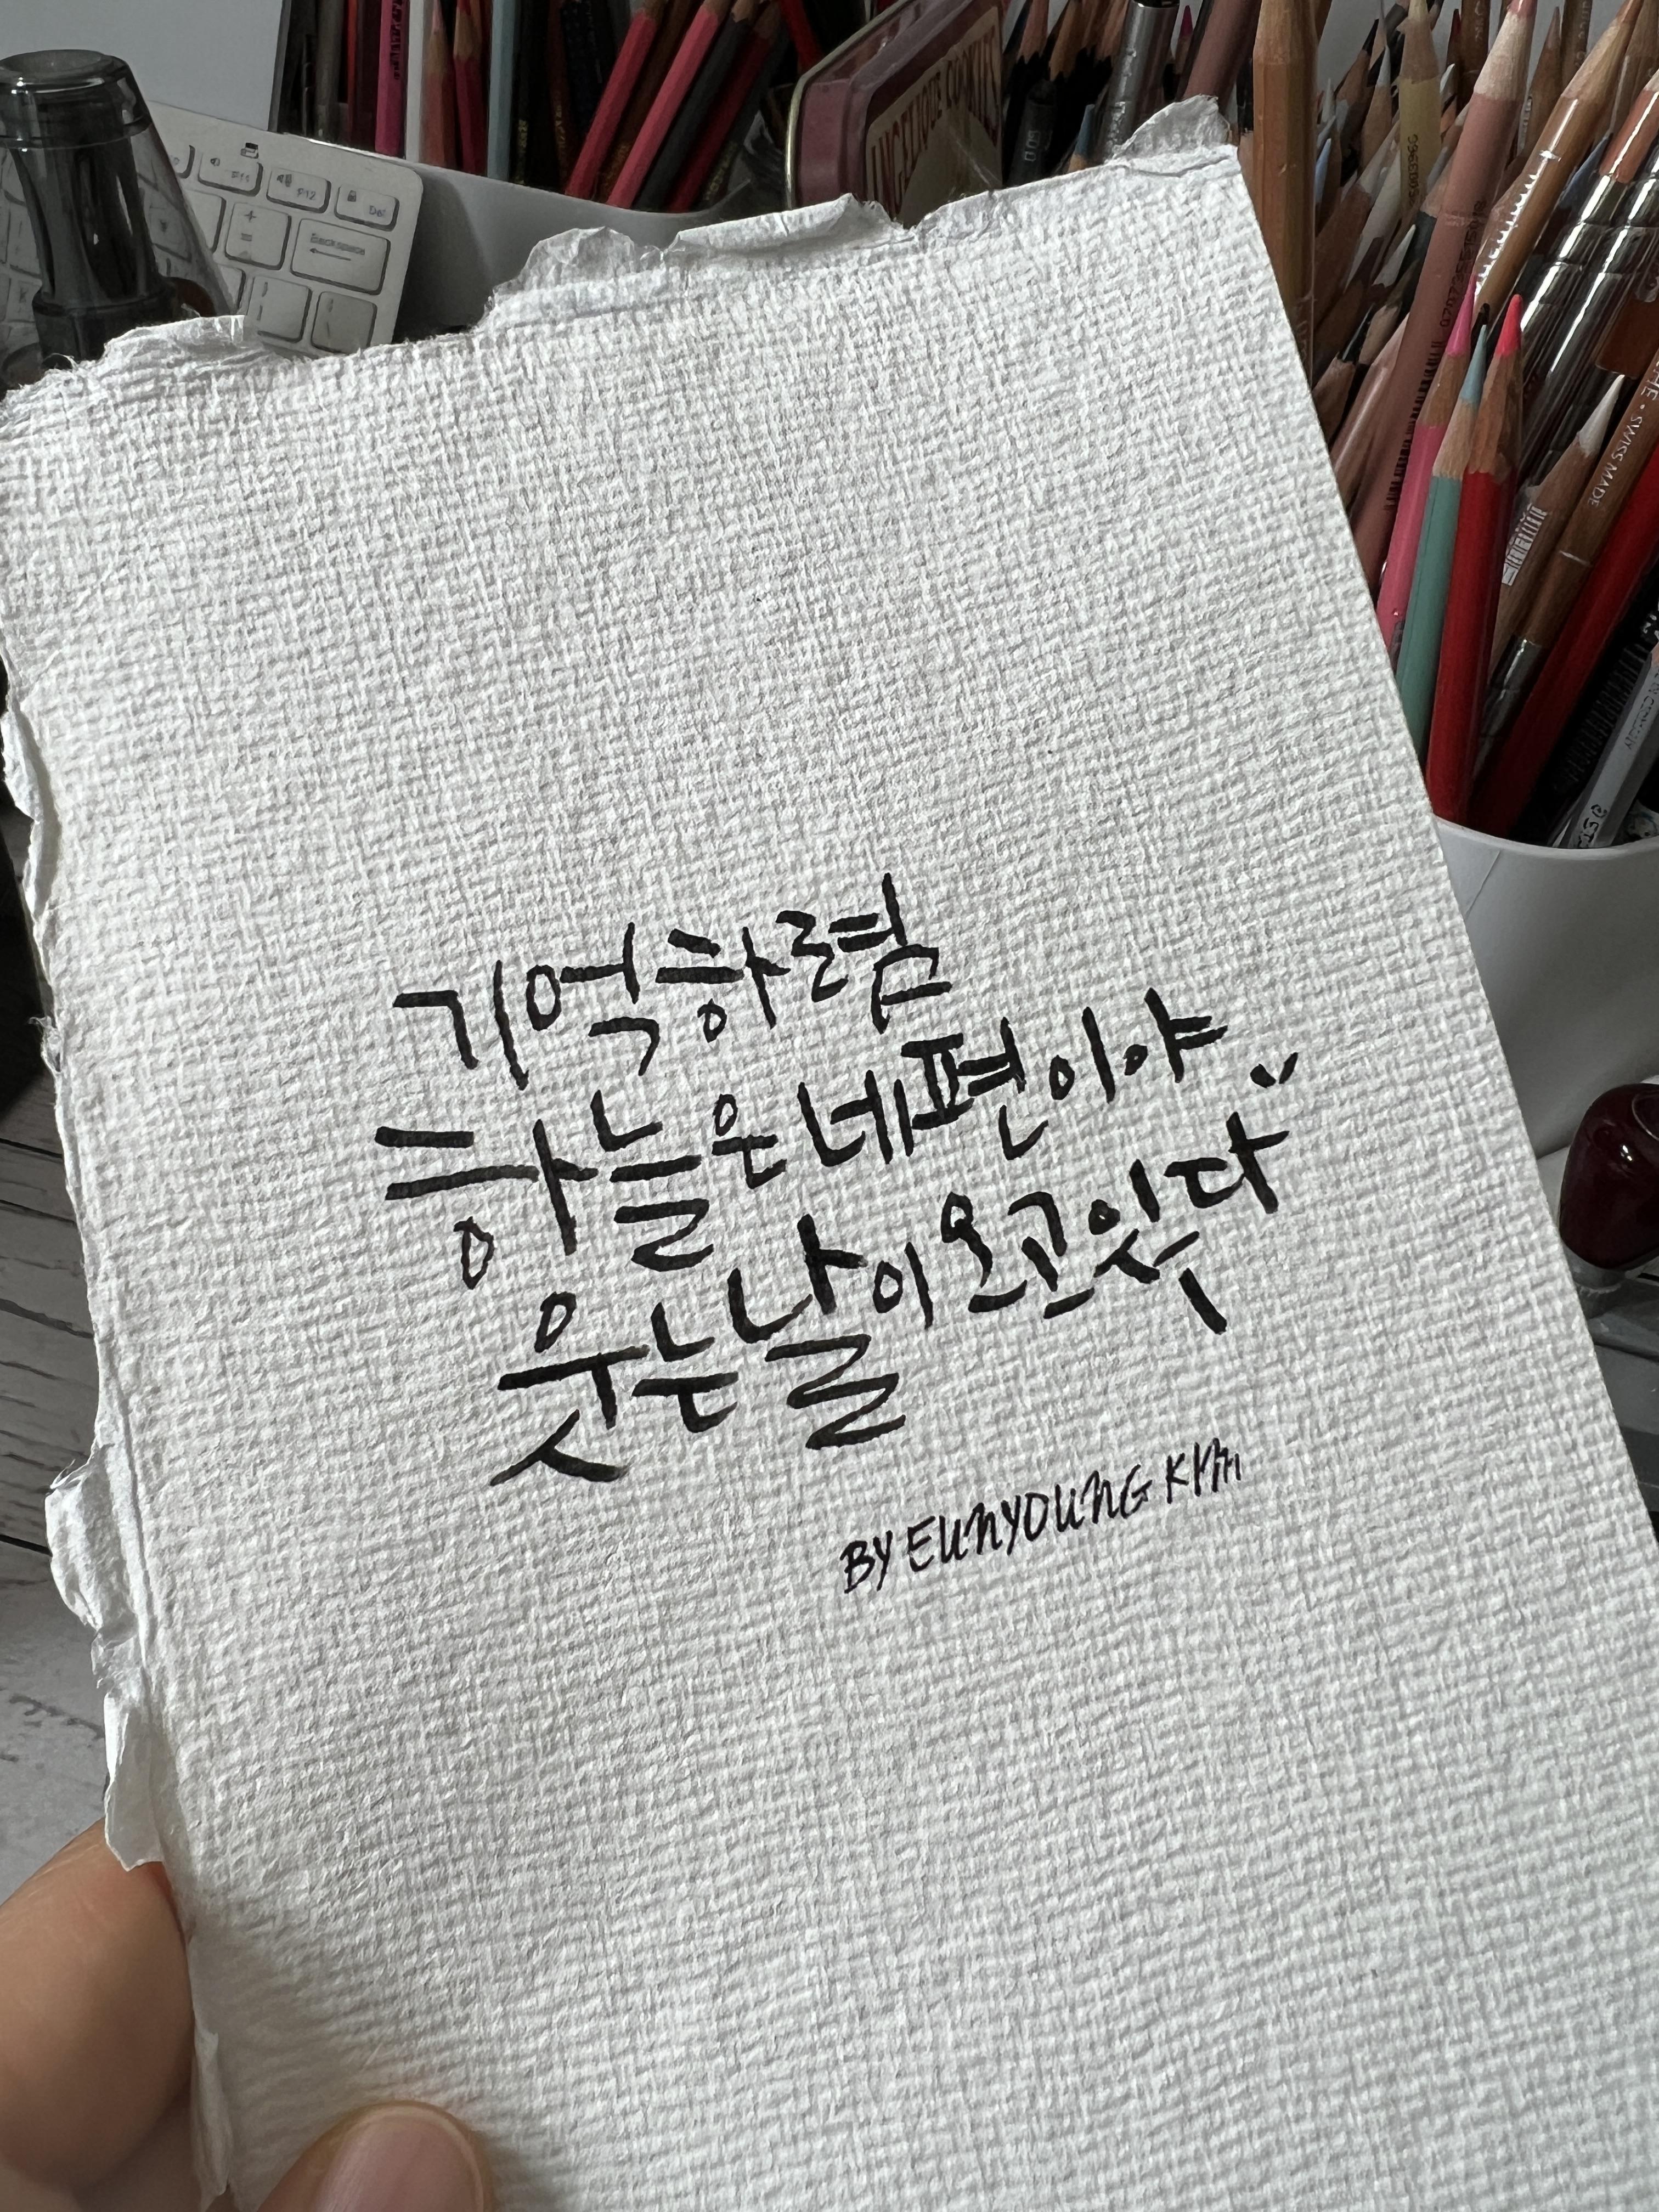 기억하렴
하늘은 네편이야
웃는날이 오고있다
BY EUNYOUNG KIM
F11
F12
Del
Backspace
SWISS MADE